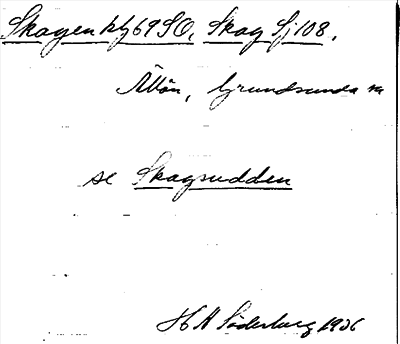 Skagen kbl 69 SO, Skag Sj 108.
Åvön, Grundsunda sn
se Skagsudden
H A Söderberg 1936